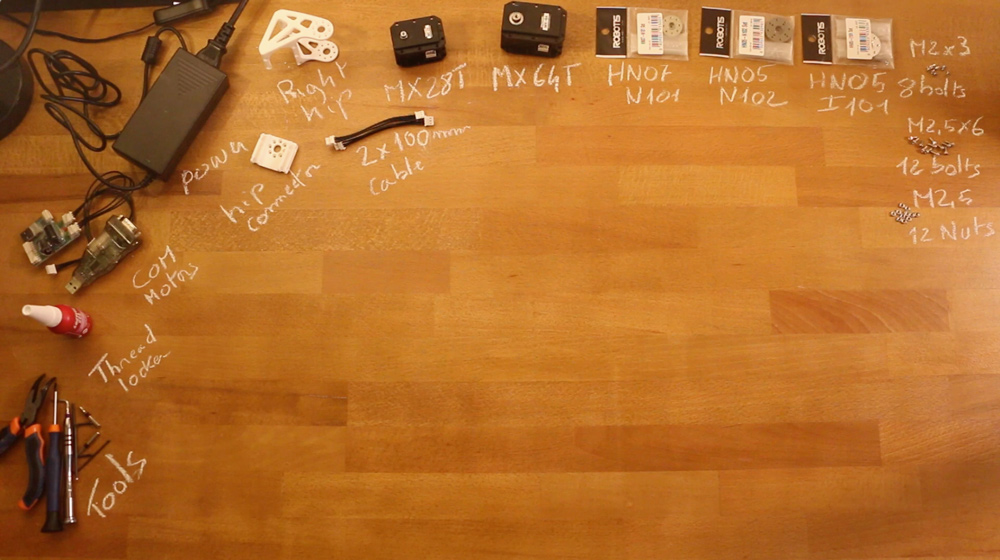 Right
hip
MX28T
MX64T
ROBOTIS
HN07
N101
ROBOTIS
HN05
N102
ROBOTIS
HN05
I101
M2x3
8 bolts
M2,5x6
12 bolts
M2,5
12 Nuts
power
hip
connector
2x100mm
cable
COM
Motors
Thread
locker
Tools